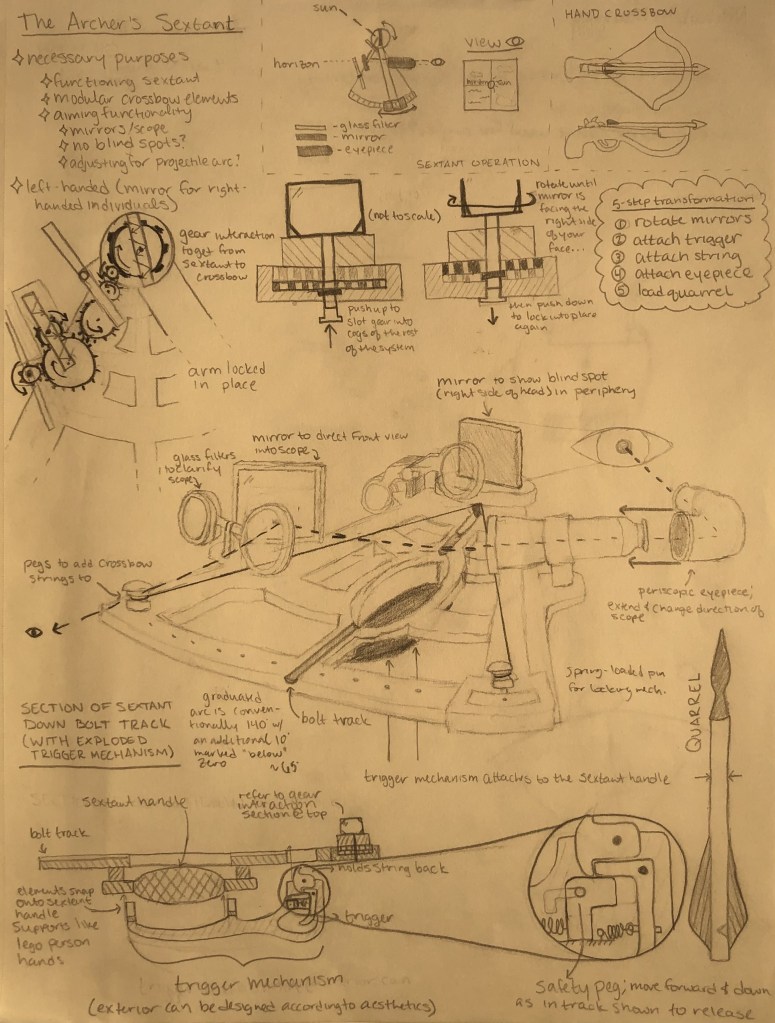 The Archer's Sextant
necessary purposes
functioning sextant
modular crossbow elements
aiming functionality
mirrors/scope
no blind spots?
adjusting for projectile arc?
left-handed (mirror for right-
handed individuals)
sun
horizon
- glass filter
- mirror
- eyepiece
VIEW
SEXTANT OPERATION
HAND CROSSBOW
gear interaction
to get from
sextant to
crossbow
(not to scale)
push up to
slot gear into
cogs of the rest
of the system
rotate until
mirror is
facing the
right side
of your
face...
then push down
to lock into place
again
5-step transformation:
① rotate mirrors
② attach trigger
③ attach string
④ attach eyepiece
⑤ load quarrel
arm locked
in place
mirror to show blind spot
(right side of head) in periphery
glass filters
to clarify
scope
mirror to direct front view
into scope
pegs to add crossbow
strings to
periscopic eyepiece;
extend & change direction of
scope
spring-loaded pin
for locking mech.
graduated
arc is conven-
tionally 140° w/
an additional 10°
marked "below"
zero
bolt track
SECTION OF SEXTANT
DOWN BOLT TRACK
(WITH EXPLODED
TRIGGER MECHANISM)
trigger mechanism attaches to the sextant handle
QUARREL
sextant handle
refer to gear
interaction
section @ top
bolt track
holds string back
elements snap
onto sextant
handle
supports like
lego person
hands
trigger
trigger mechanism
(exterior can be designed according to aesthetics)
safety peg; move forward & down
as in track shown to release